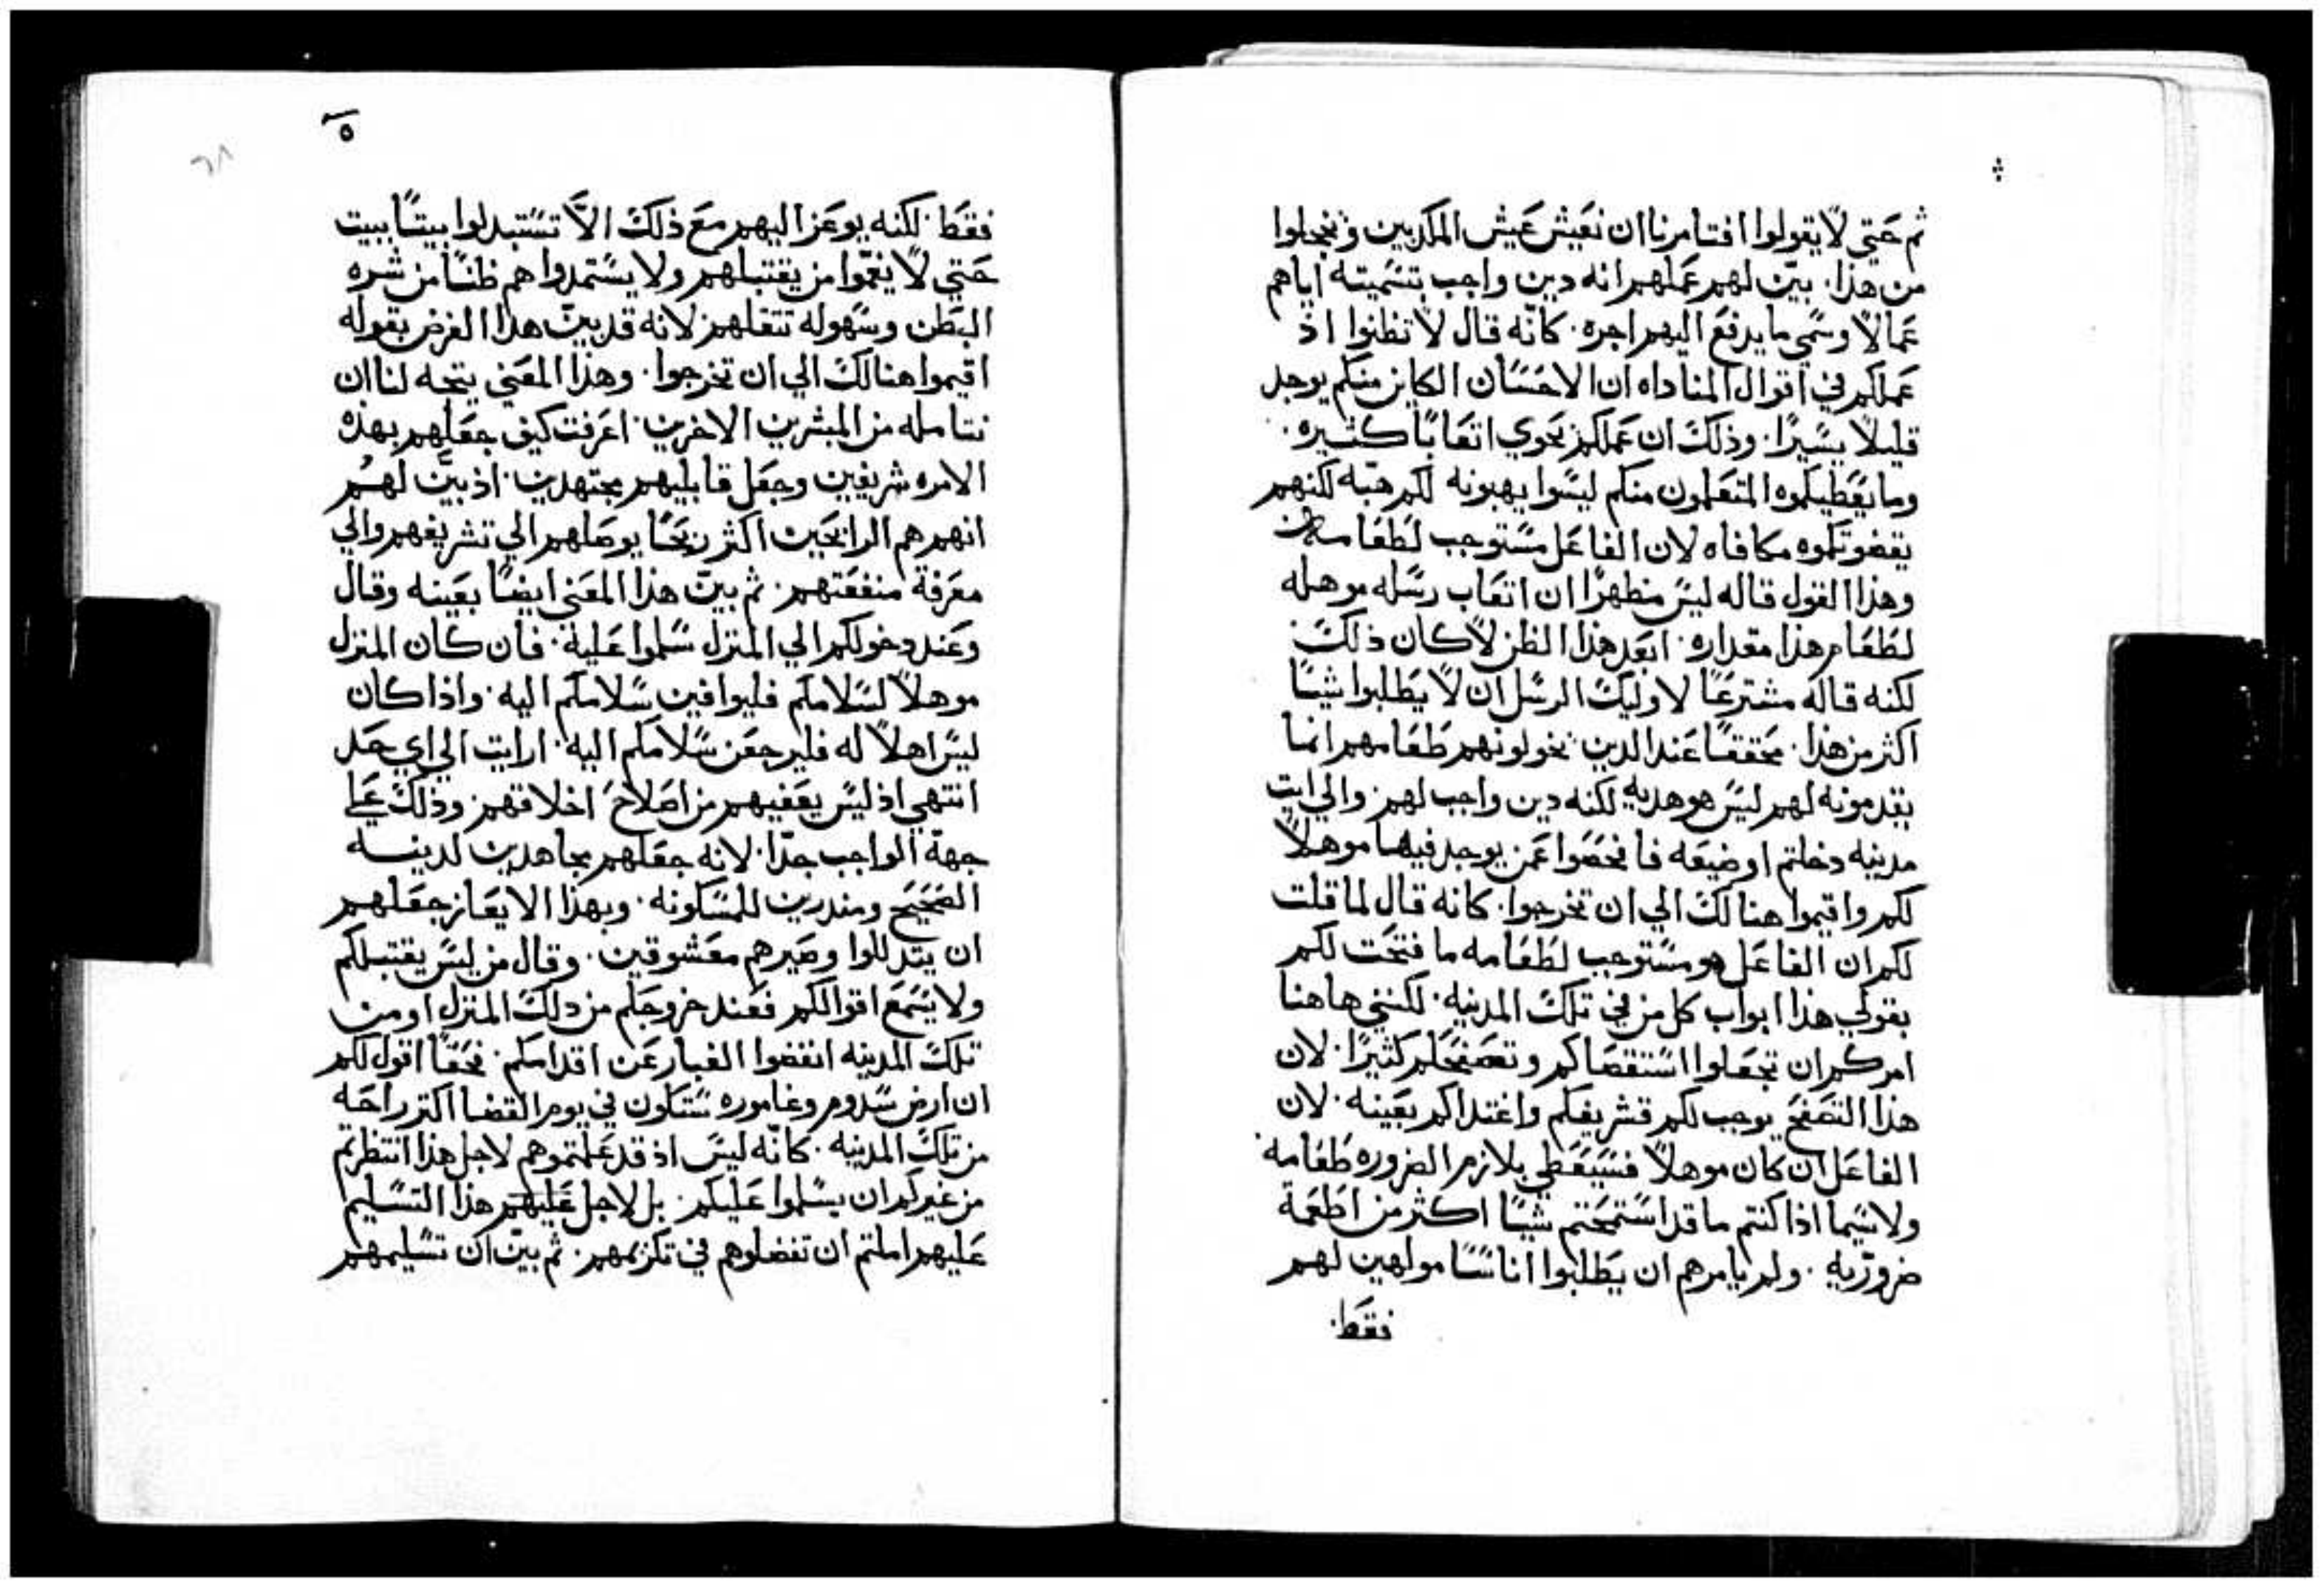 ثم حتي لا يقولوا افتامرنا ان نعيش عيش المكديين ويخجلوا
من هذا. بيّن لهم عملهم انه دين واجب بتسميته اياهم
عمالاً وسمي ما يدفع اليهم اجره. كانّه قال لا تظنوا اذ
عملكم في اقوال المناداه ان الاحسان الكاين منكم يوجد
قليلاً يسيرًا. وذلك ان عملكم يحوي اتعابًا كثيره.
وما يعطيكموه المتعلمون منكم ليسوا يهبونه لكم هبّه لكنهم
يقضونكموه مكافاه لان الفاعل مستوجب لطعامه
وهذا القول قاله ليس مظهرًا ان اتعاب رسله موهله
لطعام هذا مقداره. ابعد هذا الظن لا كان ذلك
لكنه قاله مشترعًا لاوليك الرسل ان لا يطلبوا شيًا
اكثر من هذا. محققًا عند الدين يخولونهم طعامهم انما
يقدمونه لهم ليس هو هديه لكنه دين واجب لهم. والي ايت
مدينه دخلتم او ضيعه فافحصوا عمن يوجد فيها موهلاً
لكم واقيموا هنالك الي ان تخرجوا. كانه قال لما قلت
لكم ان الفاعل هو مستوجب لطعامه ما فتحت لكم
بقولي هذا ابواب كل من في تلك المدينه. لكنني هاهنا
امركم ان تجعلوا استقصاكم وتصفحكم كثيرًا. لان
هذا التصفح يوجب لكم تشريفكم واغتداكم بعينه. لان
الفاعل ان كان موهلاً فسيعطي بلازم الضروره طعامه
ولا سيما اذا كنتم ما قد استمحتم شيًا اكثر من اطعمة
ضروريه. ولم يامرهم ان يطلبوا اناسًا موهلين لهم
فقط.
٥
٦٨
فقط. لكنه يوعز اليهم مع ذلك الاّ تستبدلوا بيتًا ببيت
حتي لا يغمّوا من يقتبلهم ولا يستمدوا هم ظنًا من شره
البطن وسهوله تنقلهم. لانه قد بيّن هذا الغرض بقوله
اقيموا هنالك الي ان تخرجوا. وهذا المعني يتجه لنا ان
نتامله من المبشرين الاخرين. اعرفت كيف جعلهم بهذه
الامره شريفين وجعل قابليهم مجتهدين. اذ بيّن لهم
انهم هم الرابحين اكثر ربحًا يوصلهم الي تشريفهم والي
معرفة منفعتهم. ثم بيّن هذا المعني ايضًا بعينه وقال
وعند دخولكم الي المنزل سلموا علية. فان كان المنزل
موهلاً لسلامكم فليوافين سلامكم اليه. واذا كان
ليس اهلاً له فليرجعن سلامكم اليه. ارايت الي اي حد
انتهي اذ ليس يعفيهم من اصلاح اخلاقهم. وذلك علي
جهة الواجب جدّا. لانه جعلهم مجاهدين لدينه
الصحيح ومنذرين للمسكونه. وبهذا الايعاز جعلهم
ان يتدللوا وصيرهم معشوقين. وقال من ليس يقتبلكم
ولا يسمع اقوالكم فعند خروجكم من دلك المنزل او من
تلك المدينه انفضوا الغبار عن اقدامكم. فحقًا اقول لكم
ان ارض سدوم وغاموره ستكون في يوم القضا اكتر راحه
من تلك المدينه. كانّه ليس اذ قد علمتموهم لاجل هذا انتظرتم
من غيركم ان يسلموا عليكم. بل لاجل عليهم هذا التسليم
عليهم املتم ان تفضلوهم في تكريمهم. ثم بيّن ان تسليمهم